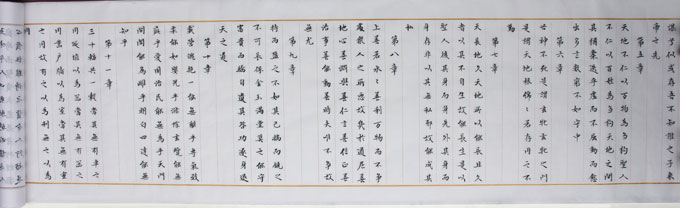 湛兮似或存吾不知誰之子象
帝之先
第五章
天地不仁以萬物為芻狗聖人
不仁以百姓為芻狗天地之間
其猶橐籥乎虛而不屈動而愈
出多言數窮不如守中
第六章
谷神不死是謂玄牝玄牝之門
是謂天地根綿々若存用之不
勤
第七章
天長地久天地所以能長且久
者以其不自生故能長生是以
聖人後其身而身先外其身而
身存非以其無私邪故能成其
私
第八章
上善若水々善利萬物而不爭
處眾人之所惡故幾於道居善
地心善淵與善仁言善信正善
治事善能動善時夫唯不爭故
無尤
第九章
持而盈之不如其已揣而銳之
不可長保金玉滿堂莫之能守
富貴而驕自遺其咎功遂身退
天之道
第十章
載營魄抱一能無離乎專氣致
柔能如嬰兒乎滌除玄覽能無
疵乎愛國治民能無為乎天門
開闔能為雌乎明白四達能無
知乎
第十一章
三十輻共一轂當其無有車之
用埏埴以為器當其無有器之
用鑿戶牖以為室當其無有室
之用故有之以為利無之以為
用